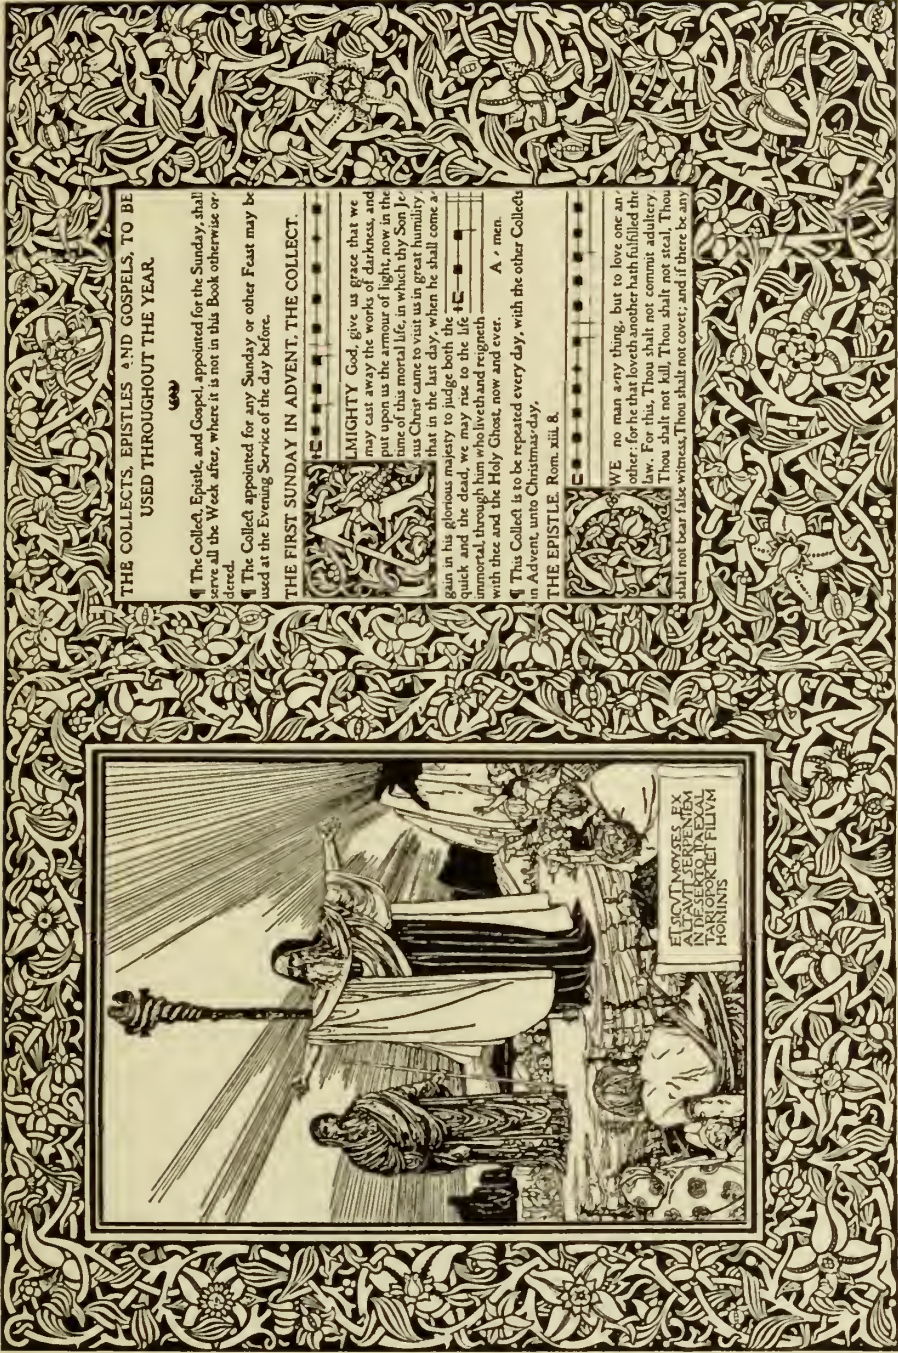 ET SICVT MOYSES EX
ALTAVIT SERPENTEM
IN DESERTO ITA EXAL
TARI OPORTET FILIVM
HOMINIS
THE COLLECTS, EPISTLES AND GOSPELS, TO BE
USED THROUGHOUT THE YEAR
¶ The Collect, Epistle, and Gospel, appointed for the Sunday, shall
serve all the Week after, where it is not in this Book otherwise or-
dered.
¶ The Collect appointed for any Sunday or other Feast may be
used at the Evening Service of the day before.
THE FIRST SUNDAY IN ADVENT, THE COLLECT.
ALMIGHTY God, give us grace that we
may cast away the works of darkness, and
put upon us the armour of light, now in the
time of this mortal life, in which thy Son Je-
sus Christ came to visit us in great humility;
that in the last day, when he shall come a-
gain in his glorious majesty to judge both the
quick and the dead, we may rise to the life
immortal, through him who liveth and reigneth
with thee and the Holy Ghost, now and ever. A - men.
¶ This Collect is to be repeated every day, with the other Collects
in Advent, unto Christmas-day.
THE EPISTLE. Rom. xiii. 8.
OWE no man a-ny thing, but to love one an-
other: for he that loveth another hath fulfilled the
law. For this, Thou shalt not commit adultery,
Thou shalt not kill, Thou shalt not steal, Thou
shalt not bear false witness, Thou shalt not covet; and if there be any